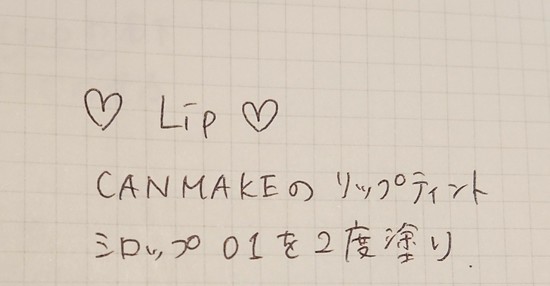 ♡ Lip ♡
CANMAKEの リップティント
シロップ 01を2度塗り.